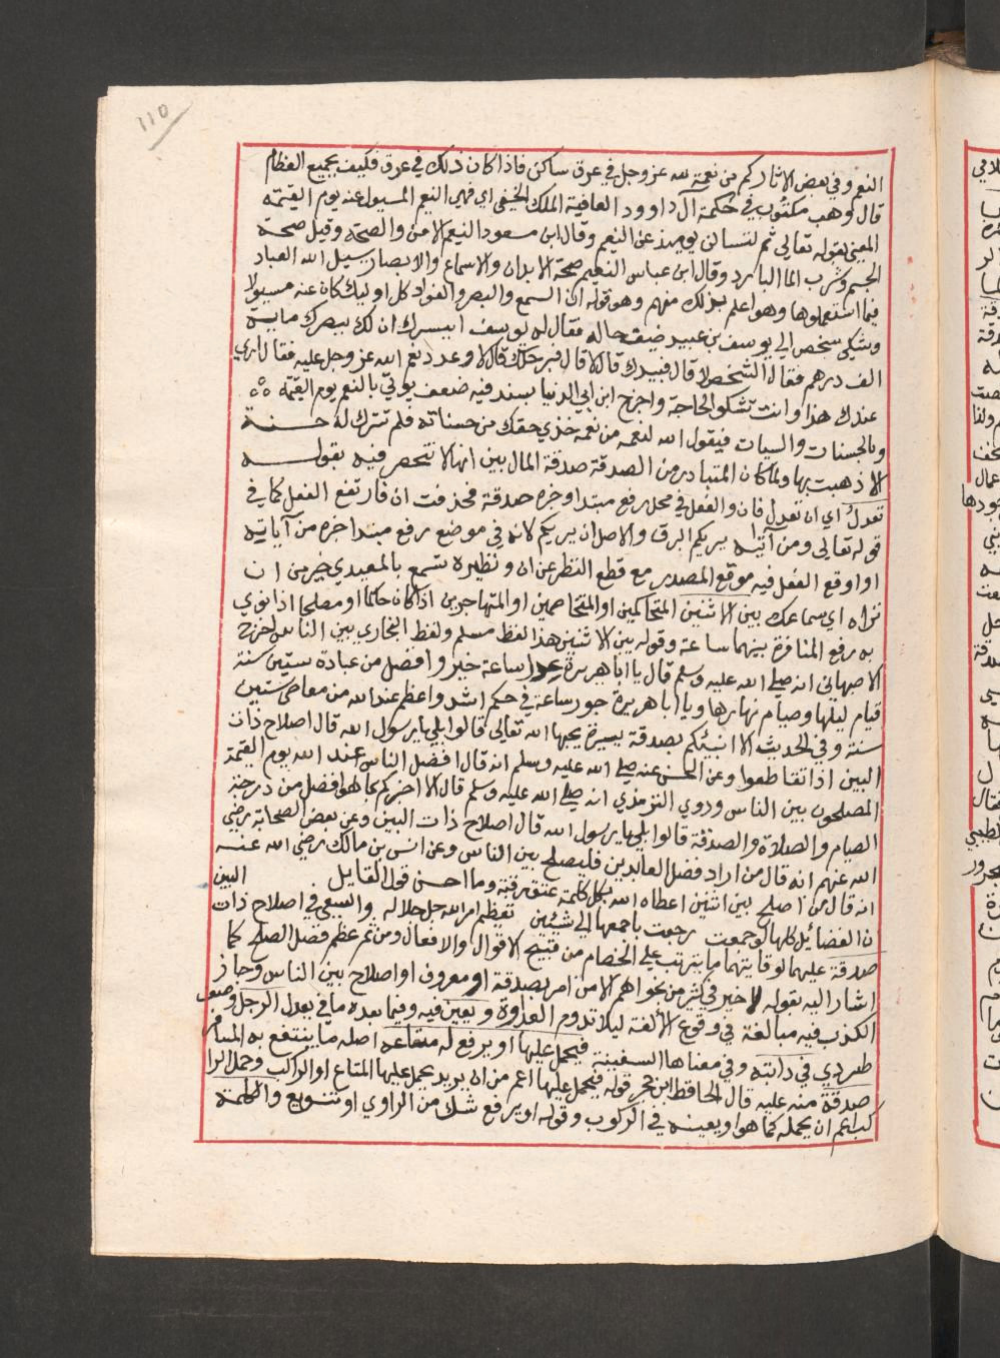 110
النعم وفي بعض الاثار كم من نعمة لله عز وجل في عرق ساكن فاذا كان ذلك في عرق فكيف بجميع العظام
قال وهب مكتوب في حكمة آل داوود العافية الملك الخفي اي فهي النعم المسيول عنه يوم القيمة
المعني بقوله تعالي ثم لتسالن يوميذ عن النعيم وقال ابن مسعود النعيم الامن والصحة وقيل صحة
الجسم وشرب الما البارد وقال ابن عباس النعيم صحة الابدان والاسماع والابصار يسيل الله العباد
فيما استعملوها وهو اعلم بذلك منهم وهو قوله ان السمع والبصر والفواد كل اوليك كان عنه مسيولا
وشكي شخص الي يوسف بن عبيد ضيق حاله فقال له يوسف ايسرك ان لك ببصرك ماية
الف درهم فقال الشخص لا قال فبيدك قال لا قال فبرجلك قال لا وعدد نعم الله عز وجل عليه فقال اري
عندك هذا وانت تشكو الحاجة واخرج ابن ابي الدنيا بسند فيه ضعف يوتي بالنعم يوم القيمة
وبالحسنات والسيات فيقول الله لنعمه من نعمه خذي حقك من حسناته فلم تترك له حسنة
الا ذهبت بها ولما كان المتبادر من الصدقة صدقة المال بين انها لا تنحصر فيه بقوله
تعدل اي ان تعدل فان والفعل في محل رفع مبتدا وخبره صدقة فحذفت ان فارتفع الفعل كما في
قوله تعالي ومن آياته يريكم البرق والاصل ان يريكم لانه في موضع رفع مبتدا خبره من آياته
او اوقع الفعل فيه موقع المصدر مع قطع النظر عن ان ونظيره تسمع بالمعيدي خير من ان
تراه اي سماعك بين الاثنين المتحاكمين او المتخاصمين او المتهاجرين اذا كان حاكما او مصلحا اذا نوي
به رفع المنافرة بينهما ساعة وقوله بين الاثنين هذا لفظ مسلم ولفظ البخاري بين الناس اخرج
الاصبهاني انه صلي الله عليه وسلم قال يا ابا هريرة عدل ساعة خير وافضل من عبادة ستين سنة
قيام ليلها وصيام نهارها ويا ابا هريرة جور ساعة في حكم اشد واعظم عند الله من معاصي ستين
سنة وفي الحديث الا انبيكم بصدقة يسيرة يحبها الله تعالي قالوا بلي يا رسول الله قال اصلاح ذات
البين اذا تقاطعوا وعن الحسن عنه صلي الله عليه وسلم انه قال افضل الناس عند الله يوم القيمة
المصلحون بين الناس وروي الترمذي انه صلي الله عليه وسلم قال الا اخبركم بما هو افضل من درجة
الصيام والصلاة والصدقة قالوا بلي يا رسول الله قال اصلاح ذات البين وعن بعض الصحابة رضي
الله عنهم انه قال من اراد فضل العابدين فليصلح بين الناس وعن انس بن مالك رضي الله عنه
انه قال من اصلح بين اثنين اعطاه الله بكل كلمة عتق رقبة وما احسن قول القايل البين
ان الفضايل كلها لو جمعت رجعت باجمعها الي شيئين تعظيم امر الله جل جلاله والسعي في اصلاح ذات
صدقة عليهما لوقايتهما ما يترتب علي الخصام من قبيح الاقوال والافعال ومن ثم عظم فضل الصلح كما
اشار اليه بقوله لا خير في كثير من نجواهم الا من امر بصدقة او معروف او اصلاح بين الناس وجاز
الكذب فيه مبالغة في وقوع الالفة ليلا تدوم العداوة ويعين فيه وفيما بعده ما في يعدل الرجل
في دابته وفي معناها السفينة فيحمل عليها او يرفع له متاعه اصله ما ينتفع به المسافر
صدقة منه عليه قال الحافظ ابن حجر قوله فيحمل عليها اعم من ان يريد يحمل عليها المتاع او الراكب وحمل الرا
كب اعم ان يحمله كما هو او يعينه في الركوب وقوله او يرفع شك من الراوي او تنويع والكلمة